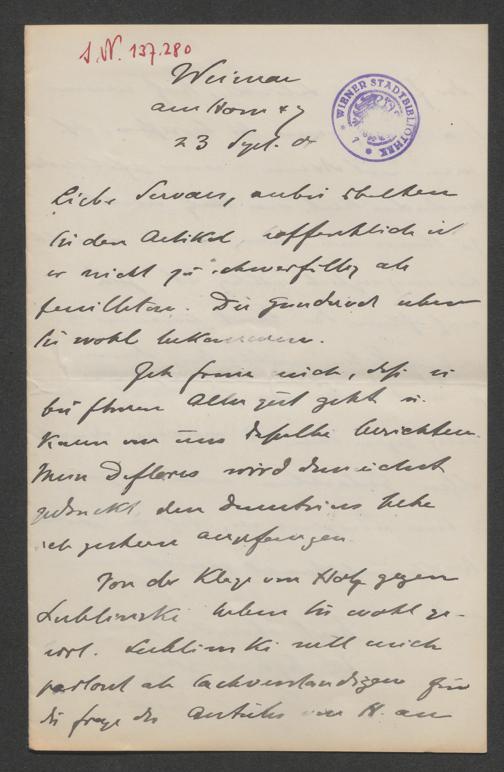 J.N. 137.280
WIENER STADTBIBLIOTHEK
Weimar
am Horn
23 Sept.
Liebe Servaes, anbei erhalten
Sie den Artikel, hoffentlich ist
er nicht zu schwerfällig als
feuilleton. Die Gunderod haben
Sie wohl bekommen.
Ich freue mich, daß es
bei Ihnen Allen gut geht
kann von uns dasselbe berichten.
Mein Deflores wird demnächst
gedruckt, den Demetrius habe
ich gestern angefangen.
Von der Klage von Holz gegen
Lublinski haben Sie wohl ge-
hört. Lublinski will mich
partout als Sachverständigen für
die frage des Anteils von H. an